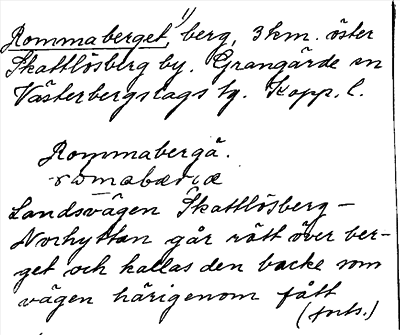 Rommaberget, berg, 3 km. öster
Skattlösberg by. Grangärde sn
Västerbergslags tg. Kopp. l.
Rommabergä.
Landsvägen Skattlösberg -
Norhyttan går rätt över ber-
get och kallas den backe som
vägen härigenom fått
(forts.)